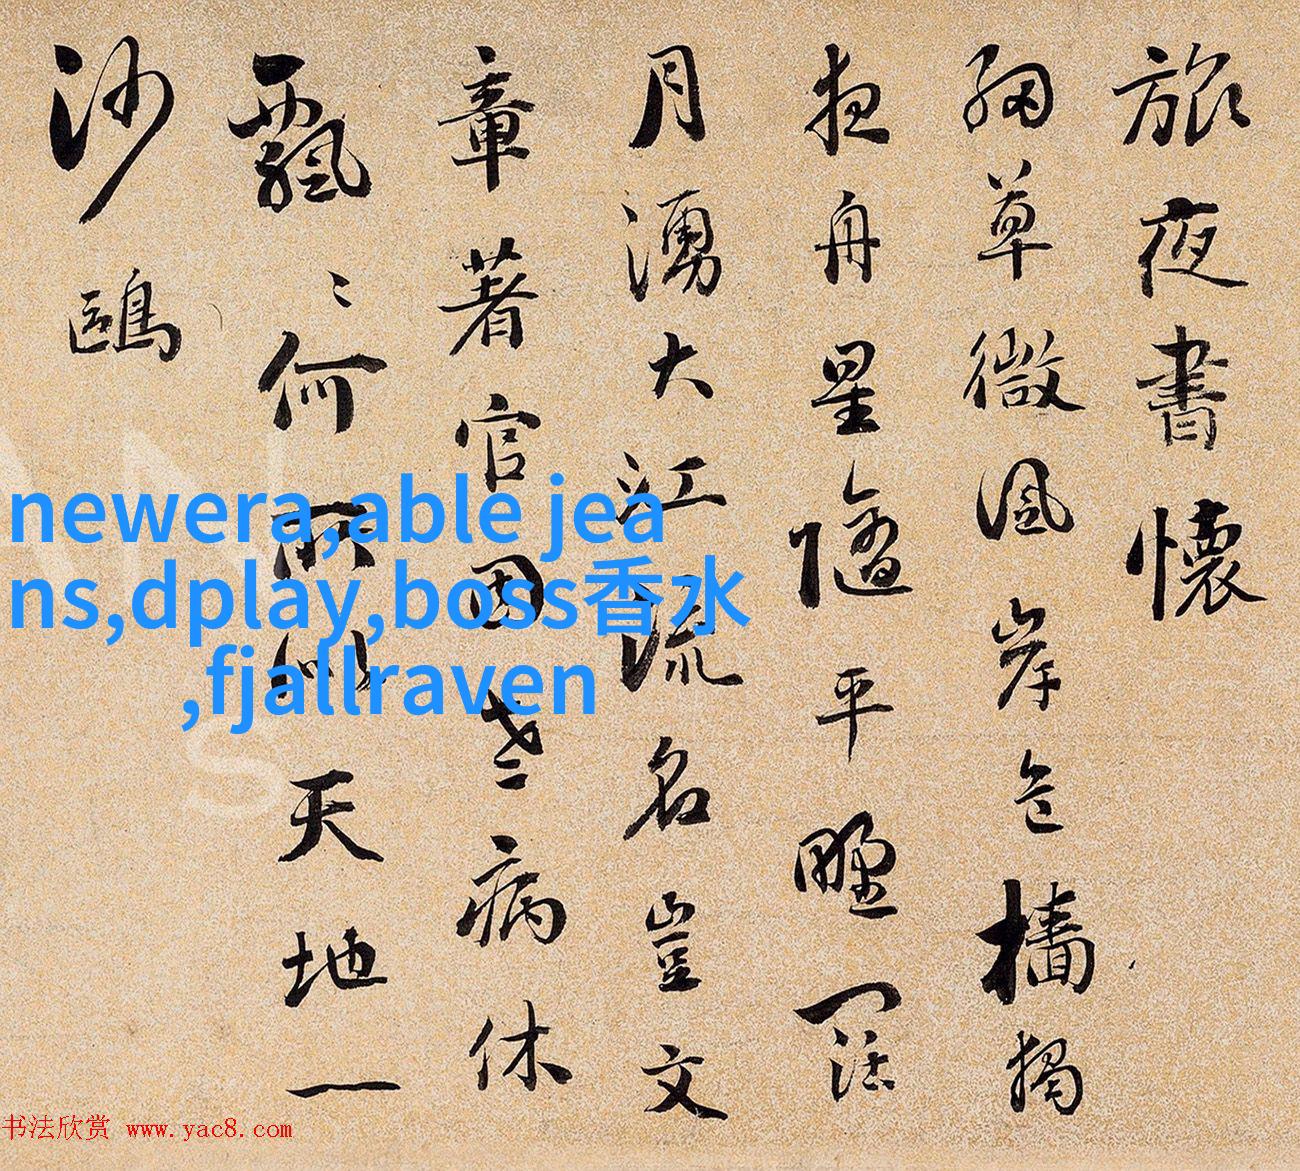 旅夜書懷
細草微風岸危檣獨
夜舟星隨平野闊
月湧大江流名豈文
章著官因老病休
飄〻何所似天地一
沙鷗
newera,able jea
ns,dplay,boss香水
,fjallraven
书法欣赏 www.yac8.com